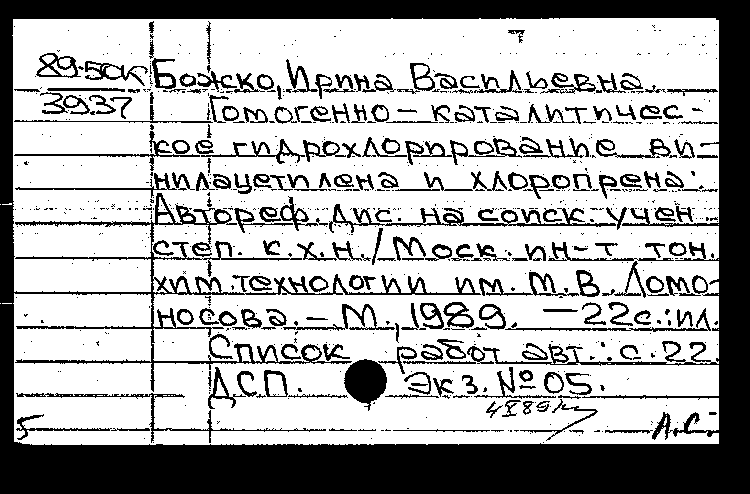 89-50К Божко, Ирина Васильевна.
3937 Гомогенно-каталитичес-
кое гидрохлорирование ви-
нилацетилена и хлоропрена:
Автореф. дис. на соиск. учен.
степ. к.х.н. / Моск. ин-т тон.
хим. технологии им. М.В. Ломо-
носова. - М., 1989. - 22с.: ил.
Список работ авт.: с. 22.
ДСП. Экз. № 05.
5 А.С.